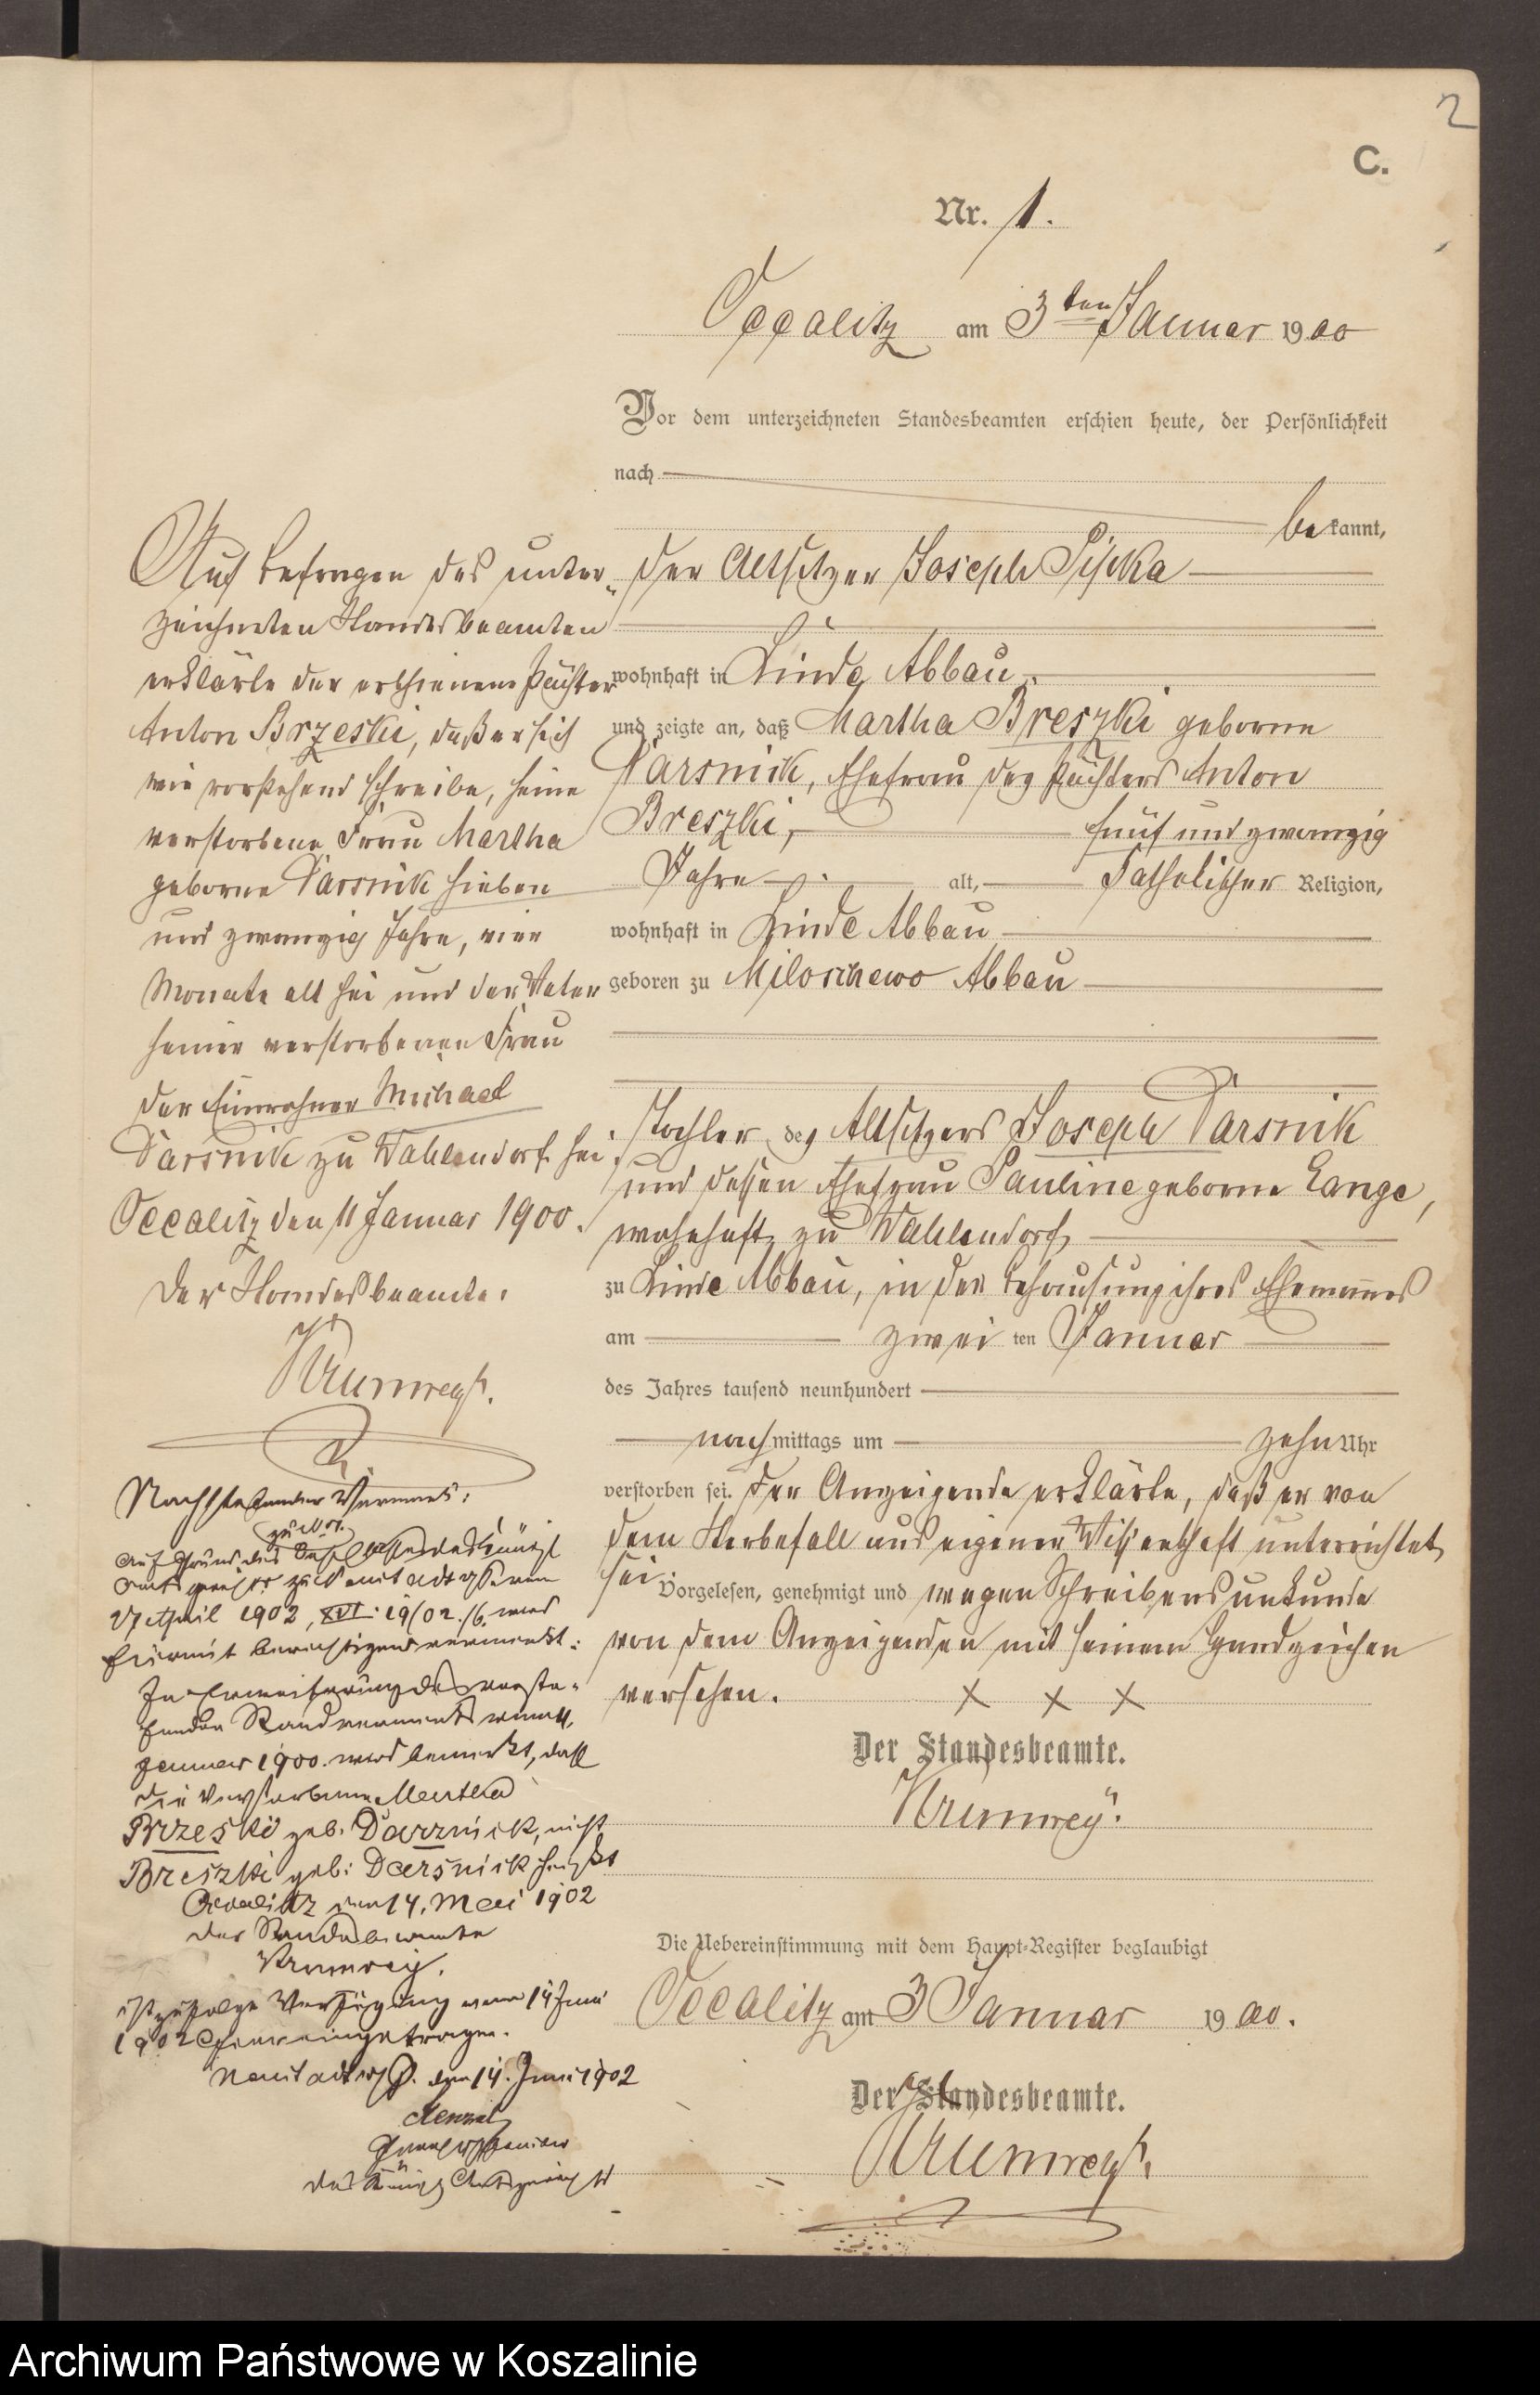 2
C.
Nr. 1.
Occalitz am 3ten Januar 1900
Vor dem unterzeichneten Standesbeamten erschien heute, der Persönlichkeit
nach
bekannt,
der Altsitzer Joseph
wohnhaft in Linde Abbau
und zeigte an, daß Martha Breszki geborne
Darsnik, Ehefrau des Pächters Anton
Breszki, fünf und zwanzig
Jahre alt, katholischer Religion,
wohnhaft in Linde Abbau
geboren zu Miloschewo Abbau
Tochter des Altsitzers Joseph Darsnik
und dessen Ehefrau Pauline geborne Lange,
wohnhaft zu Wahlendorf
zu Linde Abbau, in der Behausung ihres Ehemannes
am zwei ten Januar
des Jahres tausend neunhundert
nachmittags um zehn Uhr
verstorben sei. Der Anzeigende erklärte, daß er von
dem Sterbefall aus eigener Wissenschaft unterrichtet
sei.
Vorgelesen, genehmigt und wegen Schreibensunkunde
von dem Anzeigenden mit seinem Handzeichen
versehen. x x x
Der Standesbeamte.
Krumrey.
Die Uebereinstimmung mit dem Haupt-Register beglaubigt
Occalitz am 3 Januar 1900.
Der Standesbeamte.
Krumrey.
Auf Befragen des unter-
zeichneten Standesbeamten
erklärte der erschienene Pächter
Anton Brzeski, daß er sich
wie vorstehend schreibe, seine
verstorbene Frau Martha
geborne Darsnik sieben
und zwanzig Jahre, vier
Monate alt sei und der Vater
seiner verstorbenen Frau
der Einwohner Michael
Darsnik zu Wahlendorf sei.
Occalitz den 11 Januar 1900.
Der Standesbeamte.
Krumrey.
Nachstehender Vermerk:
Auf Grund des Beschlusses des Königl
Amtsgerichts zu Neustadt Wpr vom
April 1902, XVI. 19/02./6. wird
hiermit berichtigend vermerkt:
In Erweiterung des vorste-
henden Randvermerks vom 11.
Januar 1900. wird bemerkt, daß
die Verstorbene Martha
Brzeski geb. Darznick, nicht
Breszki geb: Darsnick heißt
Occalitz den 14. Mai 1902
Der Standesbeamte
Krumrey.
ist zufolge Verfügung vom 14 Juni
1902 hier eingetragen.
Neustadt W/P. den 14. Juni 1902
des Königl Amtsgerichts
Archiwum Państwowe w Koszalinie